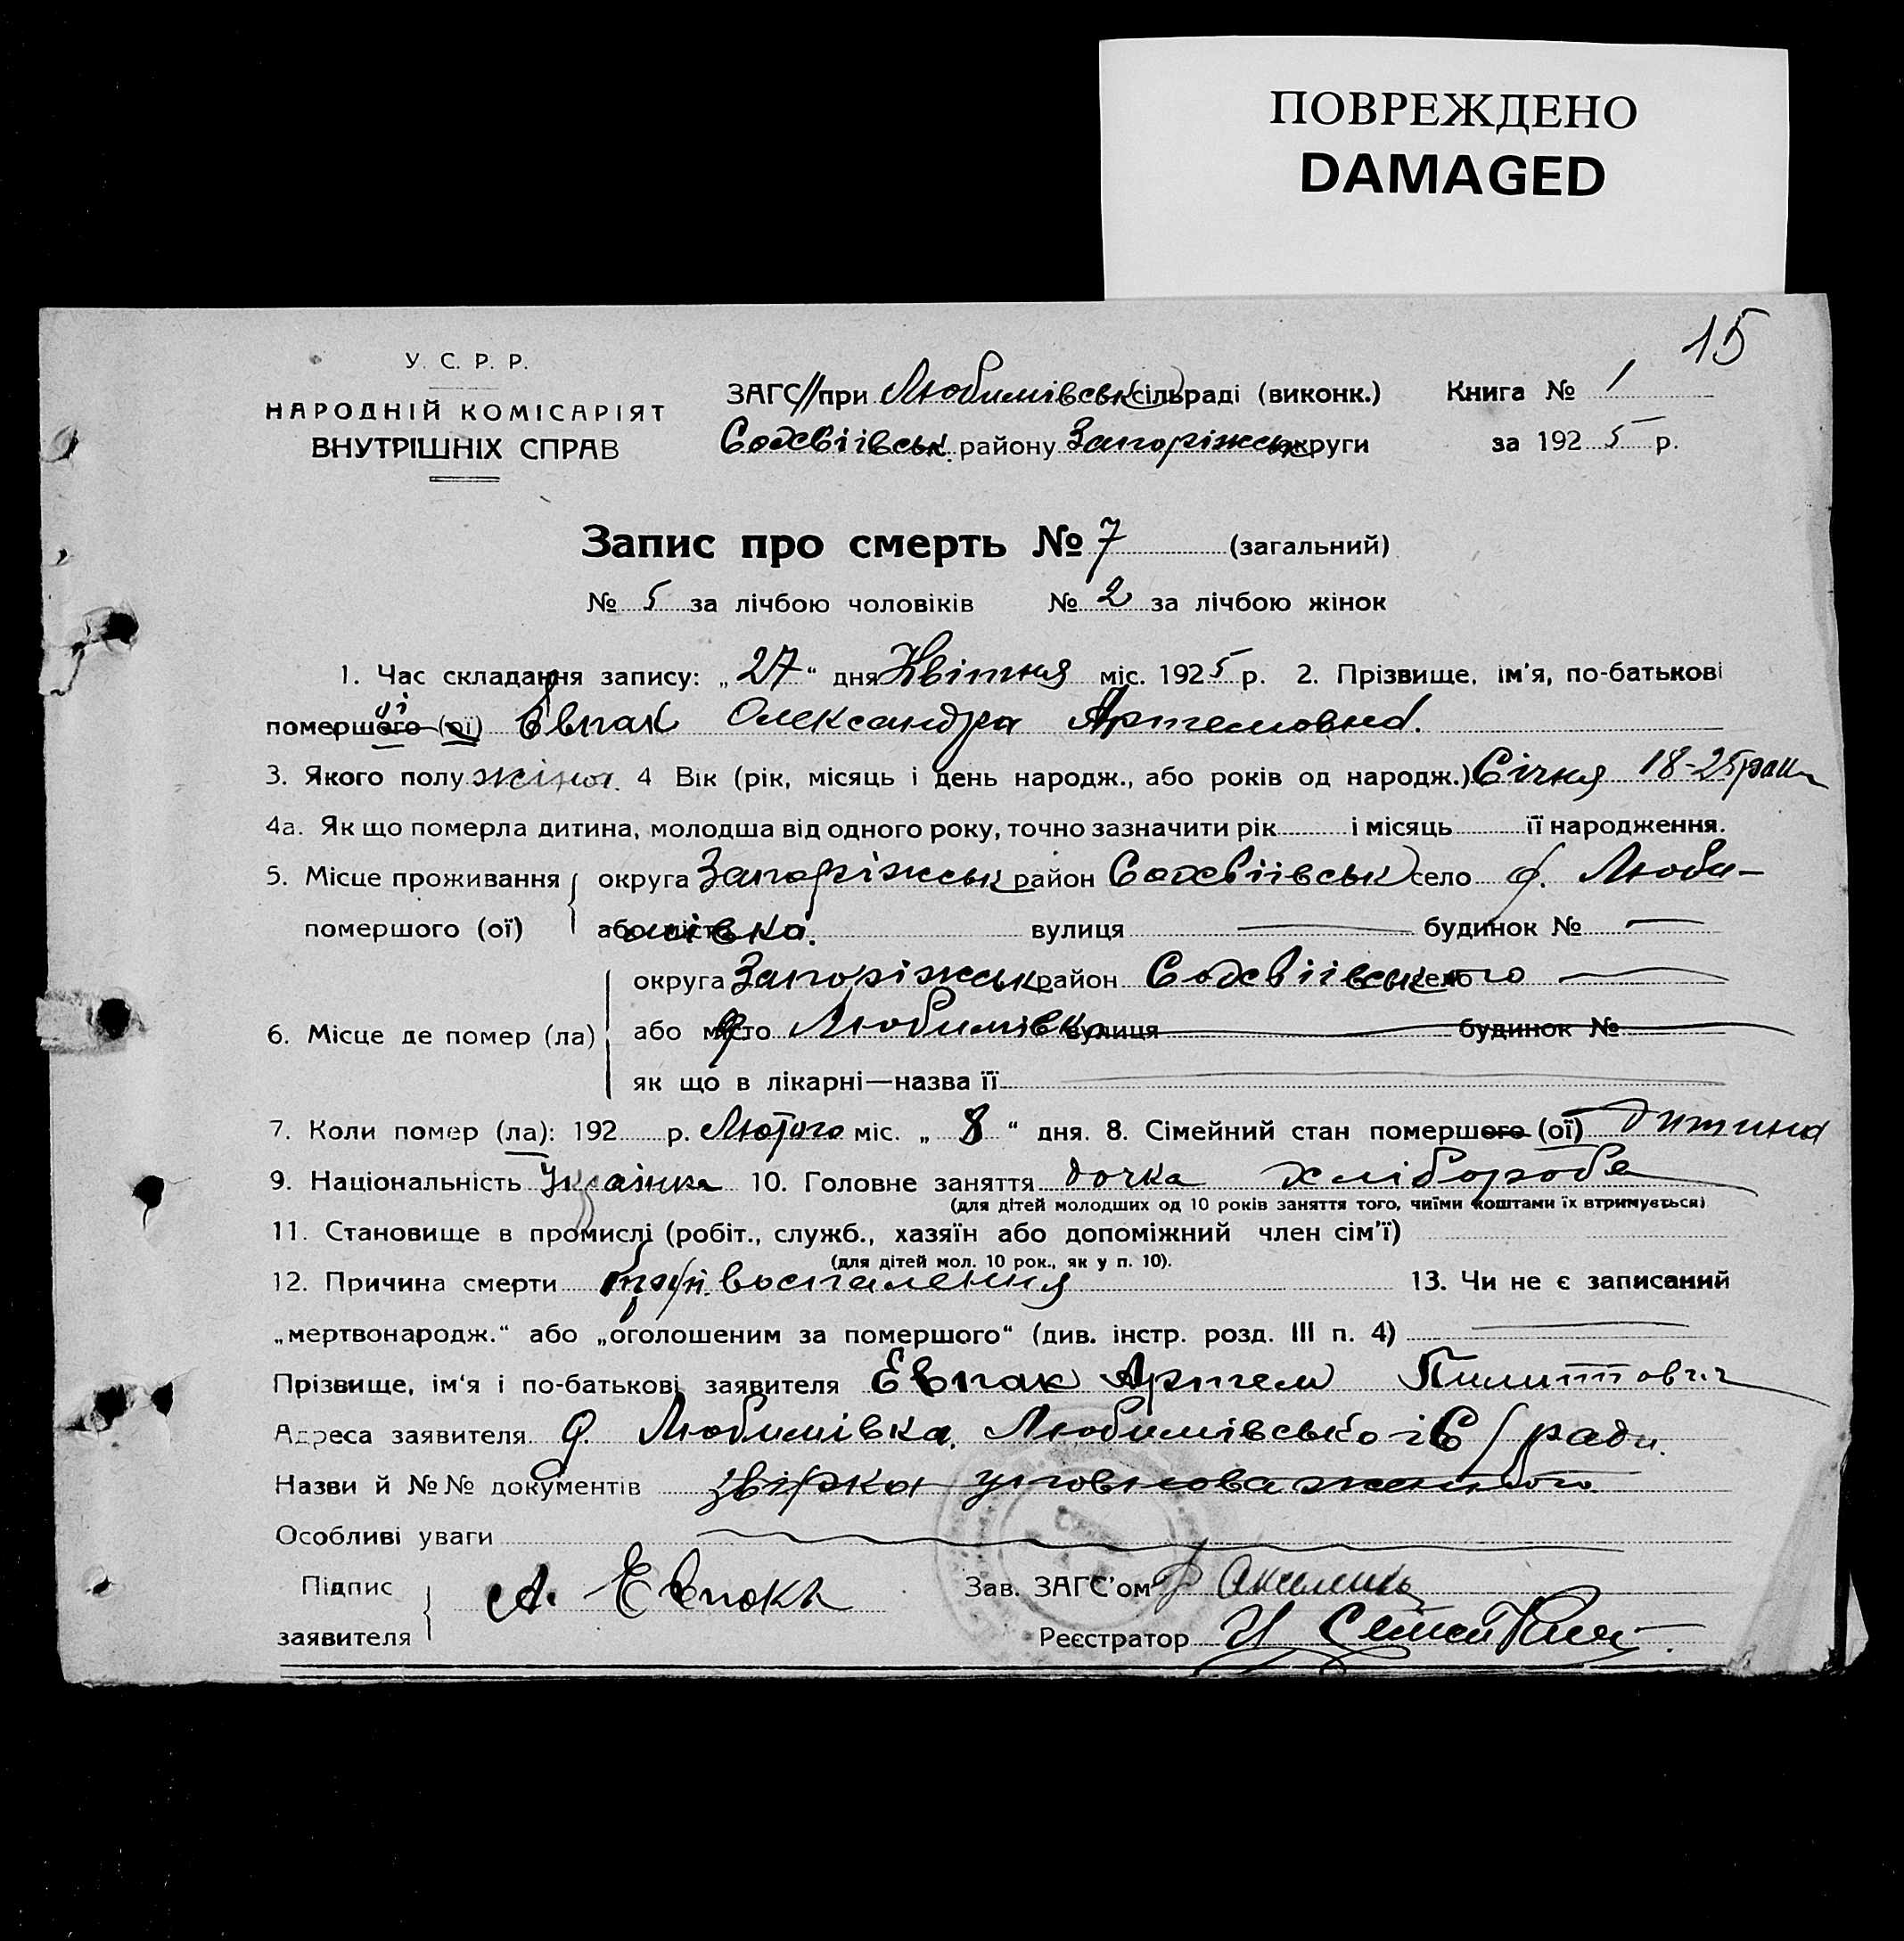 ПОВРЕЖДЕНО
DAMAGED
15
У. С. Р. Р.
НАРОДНІЙ КОМІСАРІЯТ
ВНУТРІШНІХ СПРАВ
ЗАГС при Любимівськ сільраді (виконк.) Книга № 1
району Запоріжськ округи за 1925 р.
Запис про смерть № 7 (загальний)
№ 5 за лічбою чоловіків № 2 за лічбою жінок
1. Час складання запису: „27“ дня Квітня міс. 1925 р. 2. Прізвище, ім'я, по-батькові
помершого (ої) Евпак Олександра Артемовна.
3. Якого полу жіноч. 4 Вік (рік, місяць і день народж., або років од народж.) Січня 18-25 рок
4а. Як що померла дитина, молодша від одного року, точно зазначити рік і місяць її народження.
5. Місце проживання округа Запоріжськ район село Люби-
помершого (ої) або місто мівка. вулиця — будинок № —
округа Запоріжськ район село —
6. Місце де помер (ла) або місто Любимівка вулиця будинок №
як що в лікарні—назва її
7. Коли помер (ла): 192 р. Лютого міс. „8“ дня. 8. Сімейний стан помершого (ої) дитина
9. Національність Українка 10. Головне заняття дочка хлібороба
(для дітей молодших од 10 років заняття того, чиїми коштами їх втримується)
11. Становище в промислі (робіт., служб., хазяїн або допоміжний член сім'ї)
(для дітей мол. 10 рок., як у п. 10).
12. Причина смерти воспаления 13. Чи не є записаний
„мертвонародж.“ або „оголошеним за помершого“ (див. інстр. розд. III п. 4) —
Прізвище, ім'я і по-батькові заявителя Евпак Артем Пилиппович
Адреса заявителя Любимівка, Любимівської С/ради.
Назви й №№ документів уповноваженого
Особливі уваги
Підпис
заявителя А. Евпака
Зав. ЗАГС'ом
Реєстратор